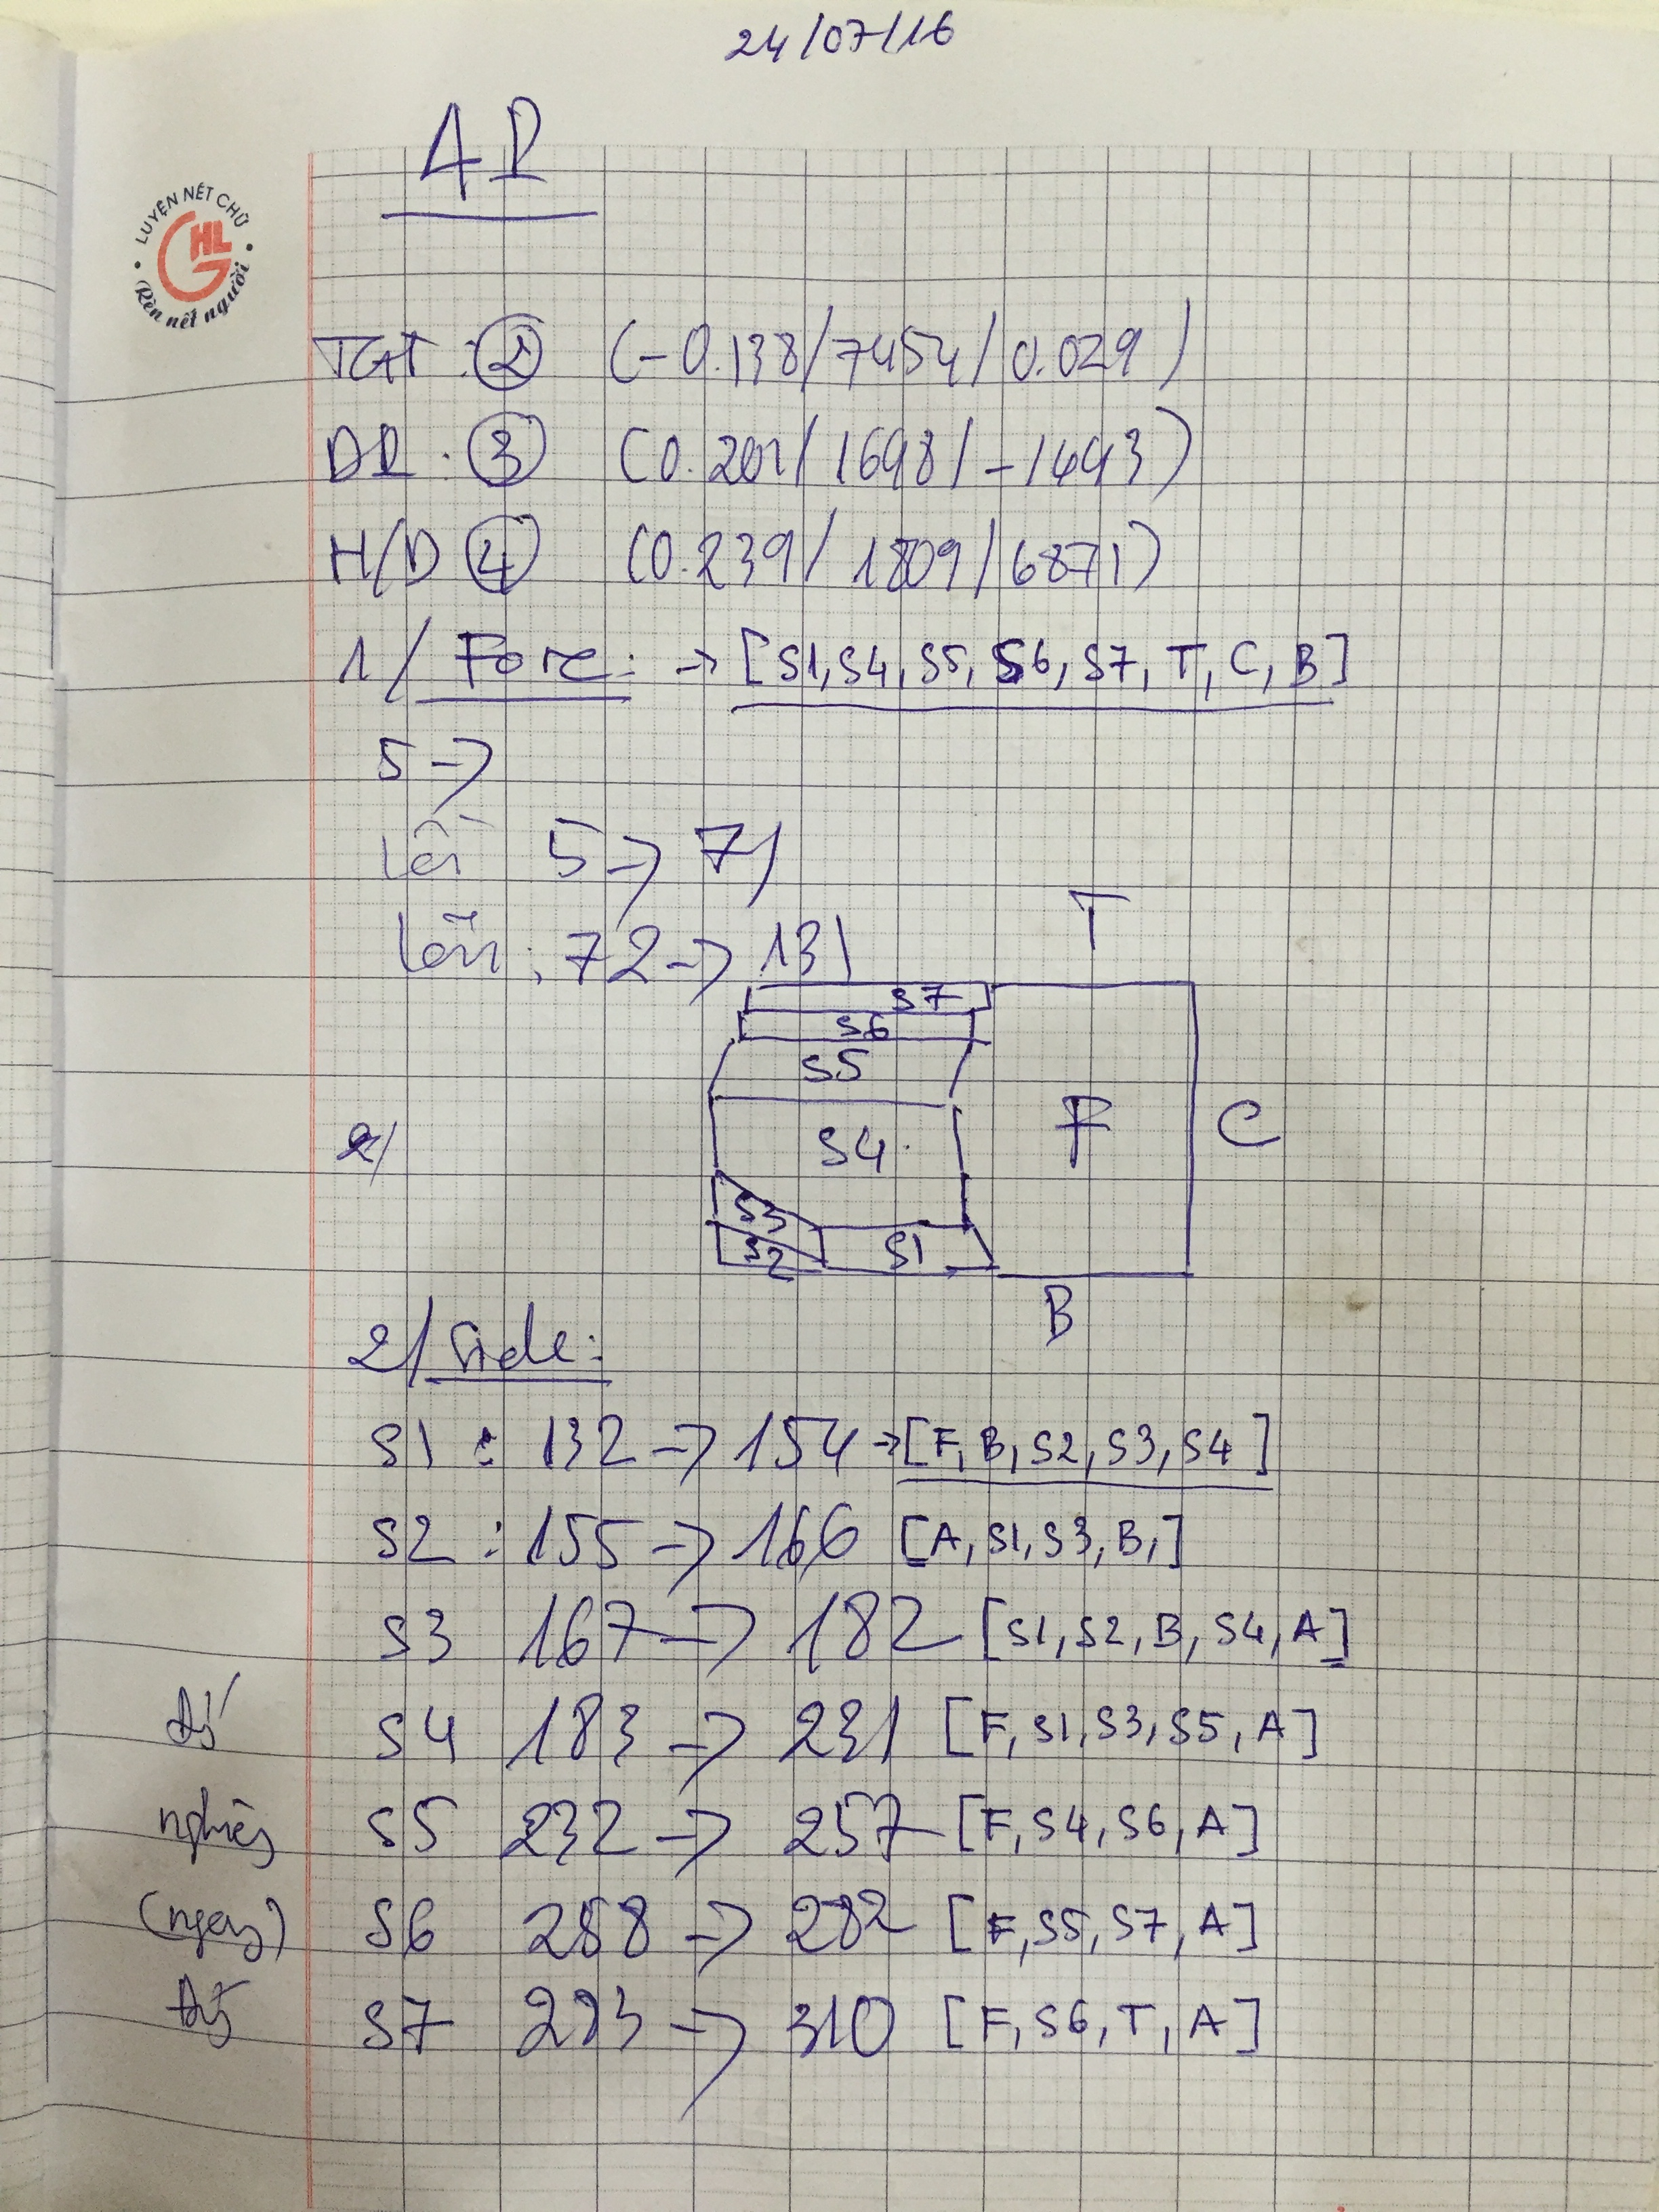 24/07/16
4P
LUYỆN NÉT CHỮ
GHL
Rèn nết người
TGT : ② (-0.138/7454/0.029)
DR : ③ (0.201/1698/-1493)
H/D ④ (0.239/1809/6871)
1/ Fore: → [S1, S4, S5, S6, S7, T, C, B]
5 →
lồi 5 → 71
lõm : 72 → 131
T
S7
S6
S5
S4
F
C
2/
S3
S2
S1
B
2/ Side:
S1 : 132 → 154 → [F, B, S2, S3, S4]
S2 : 155 → 166 [A, S1, S3, B,]
S3 167 → 182 [S1, S2, B, S4, A]
S4 183 → 231 [F, S1, S3, S5, A]
nghiêng S5 232 → 257 [F, S4, S6, A]
(ngang) S6 258 → 282 [F, S5, S7, A]
S7 283 → 310 [F, S6, T, A]